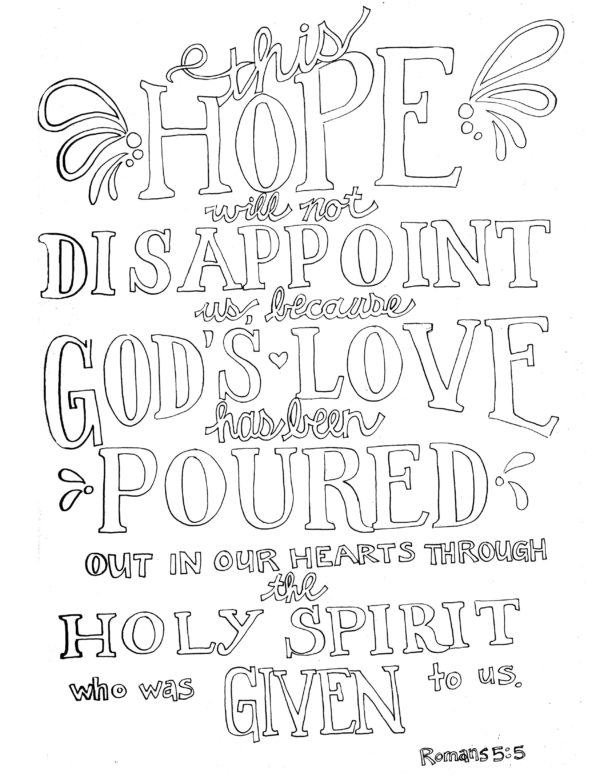 this
HOPE
will not
DISAPPOINT
us, because
GOD'S LOVE
has been
POURED
OUT IN OUR HEARTS THROUGH
the
HOLY SPIRIT
who was GIVEN to us.
Romans 5:5